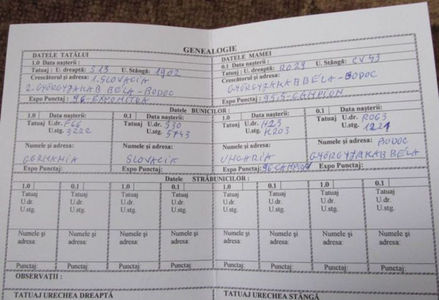 GENEALOGIE
DATELE TATĂLUI
1.0 Data nașterii:
Tatuaj : U. dreaptă: S13 U. Stângă: 1902
Crescătorul și adresa: 1. SLOVACIA
2. GYÖRGYJAKAB BÉLA - BODOC
Expo Punctaj : 96-
DATELE MAMEI
0.1 Data nașterii:
Tatuaj : U. dreaptă: R029 U. Stângă: CV43
Crescătorul și adresa:
GYÖRGYJAKAB BÉLA - BODOC
Expo Punctaj :
Datele BUNICILOR :
1.0 Data nașterii: 0.1 Data nașterii: 1.0 Data nașterii: 0.1 Data nașterii:
Tatuaj U.dr. F66 Tatuaj U.dr. S30 Tatuaj U.dr. H23 Tatuaj U.dr. R063
U.stg. 3222 U.stg. 5743 U.stg. H203 U.stg.
Numele și adresa: Numele și adresa: Numele și adresa: Numele și adresa: BODOC
GERMANIA SLOVACIA UNGARIA GYÖRGYJAKAB BÉLA
Expo Punctaj: Expo Punctaj: Expo Punctaj: Expo Punctaj:
Datele STRĂBUNICILOR :
1.0 0.1 1.0 0.1 1.0 0.1 1.0 0.1
Tatuaj Tatuaj Tatuaj Tatuaj Tatuaj Tatuaj Tatuaj Tatuaj
U.dr. U.dr. U.dr. U.dr. U.dr. U.dr. U.dr. U.dr.
U.stg. U.stg. U.stg. U.stg. U.stg. U.stg. U.stg. U.stg.
Numele și Numele și Numele și Numele și Numele și Numele și Numele și Numele și
adresa: adresa: adresa: adresa: adresa: adresa: adresa: adresa:
Punctaj: Punctaj: Punctaj: Punctaj: Punctaj: Punctaj: Punctaj: Punctaj:
OBSERVAȚII :
TATUAJ URECHEA DREAPTĂ TATUAJ URECHEA STÂNGĂ